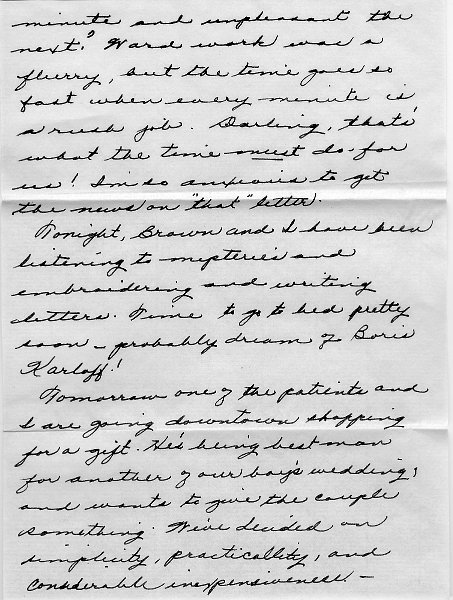 minute and unpleasant the
next? Ward work was a
flurry, but the time goes so
fast when every minute is
a rush job. Darling, that's
what the time must do for
us! I'm so anxious to get
the news on "that" letter.
Tonight, Brown and I have been
listening to mysteries and
embroidering and writing
letters. Time to go to bed pretty
soon - probably dream of Boris
Karloff!
Tomorrow one of the patients and
I are going downtown shopping
for a gift. He's being best man
for another of our boy's wedding,
and wants to give the couple
something. We've decided on
simplicity, practicallity, and
considerable inexpensiveness. -